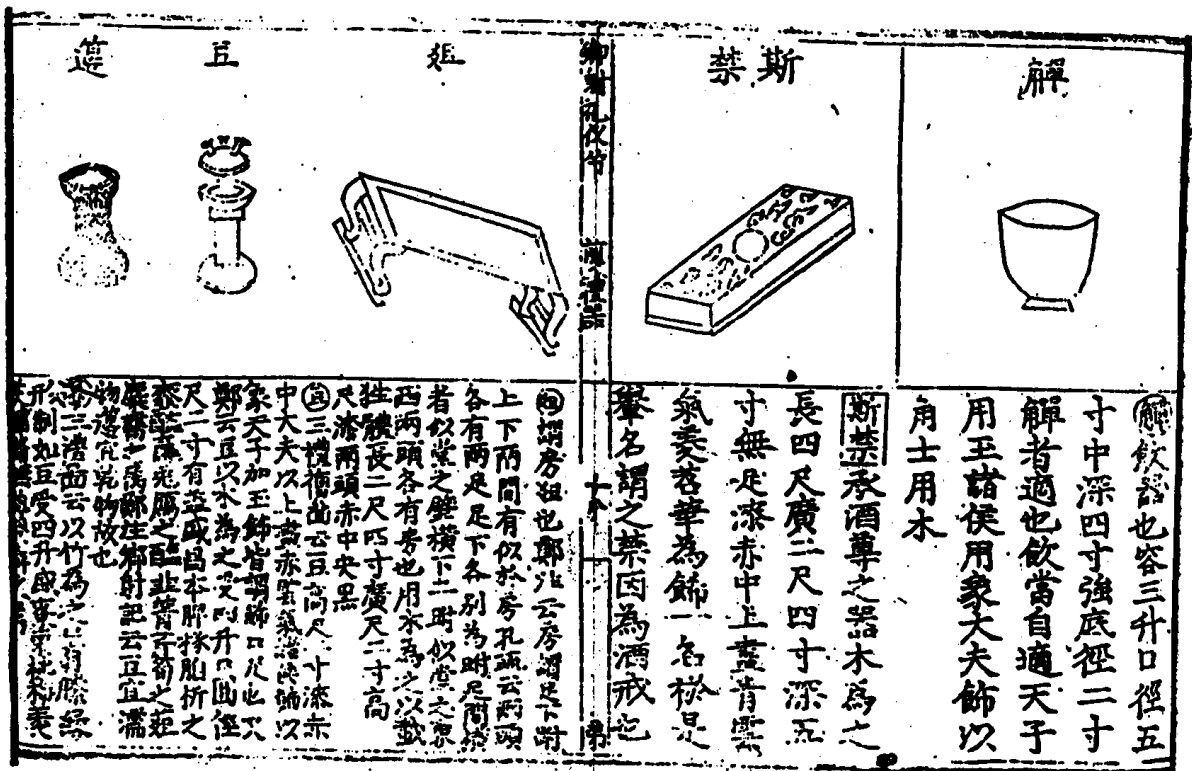 觶
觶飲器也容三升口徑五
寸中深四寸強底徑二寸
觶者適也飲當自適天子
用玉諸侯用象大夫飾以
角士用木
斯禁
斯禁承酒尊之器木為之
長四尺廣二尺四寸深五
寸無足漆赤中上畫青雲
氣菱苕華為飾一名棜是
舉名謂之禁因為酒戒也
鄉射礼仪节
俎
俎謂房俎也鄭注云房謂足下跗
上下兩間有似於房孔疏云兩頭
各有兩足足下各別為跗足間橫
者似堂之壁橫下二跗似堂之
兩兩頭各有房也用木為之以載
牲體長二尺四寸廣尺二寸高
尺漆兩頭赤中央黑
豆
豆三禮舊圖云豆高尺二寸漆赤
中大夫以上畫赤雲氣諸侯飾以
象天子加玉飾皆謂飾口足也
鄭云豆以木為之受四升口圓徑
尺二寸有蓋盛昌本脾析
豆宜濡
物籩宜乾物故也
籩
三禮圖云以竹為之口有縢緣
形制如豆受四升盛棗栗